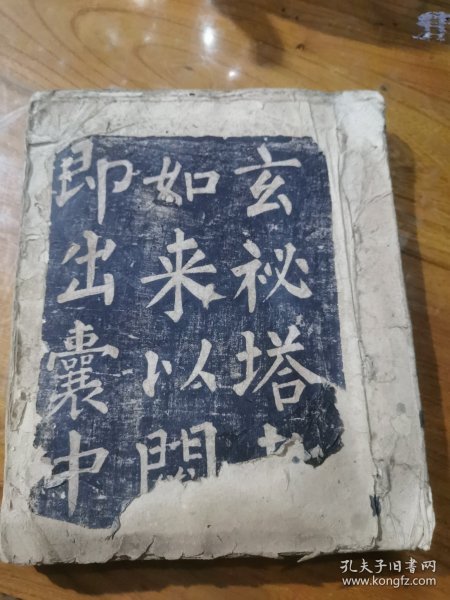 玄祕塔
如来以
即出囊中
孔夫子旧书网
www.kongfz.com